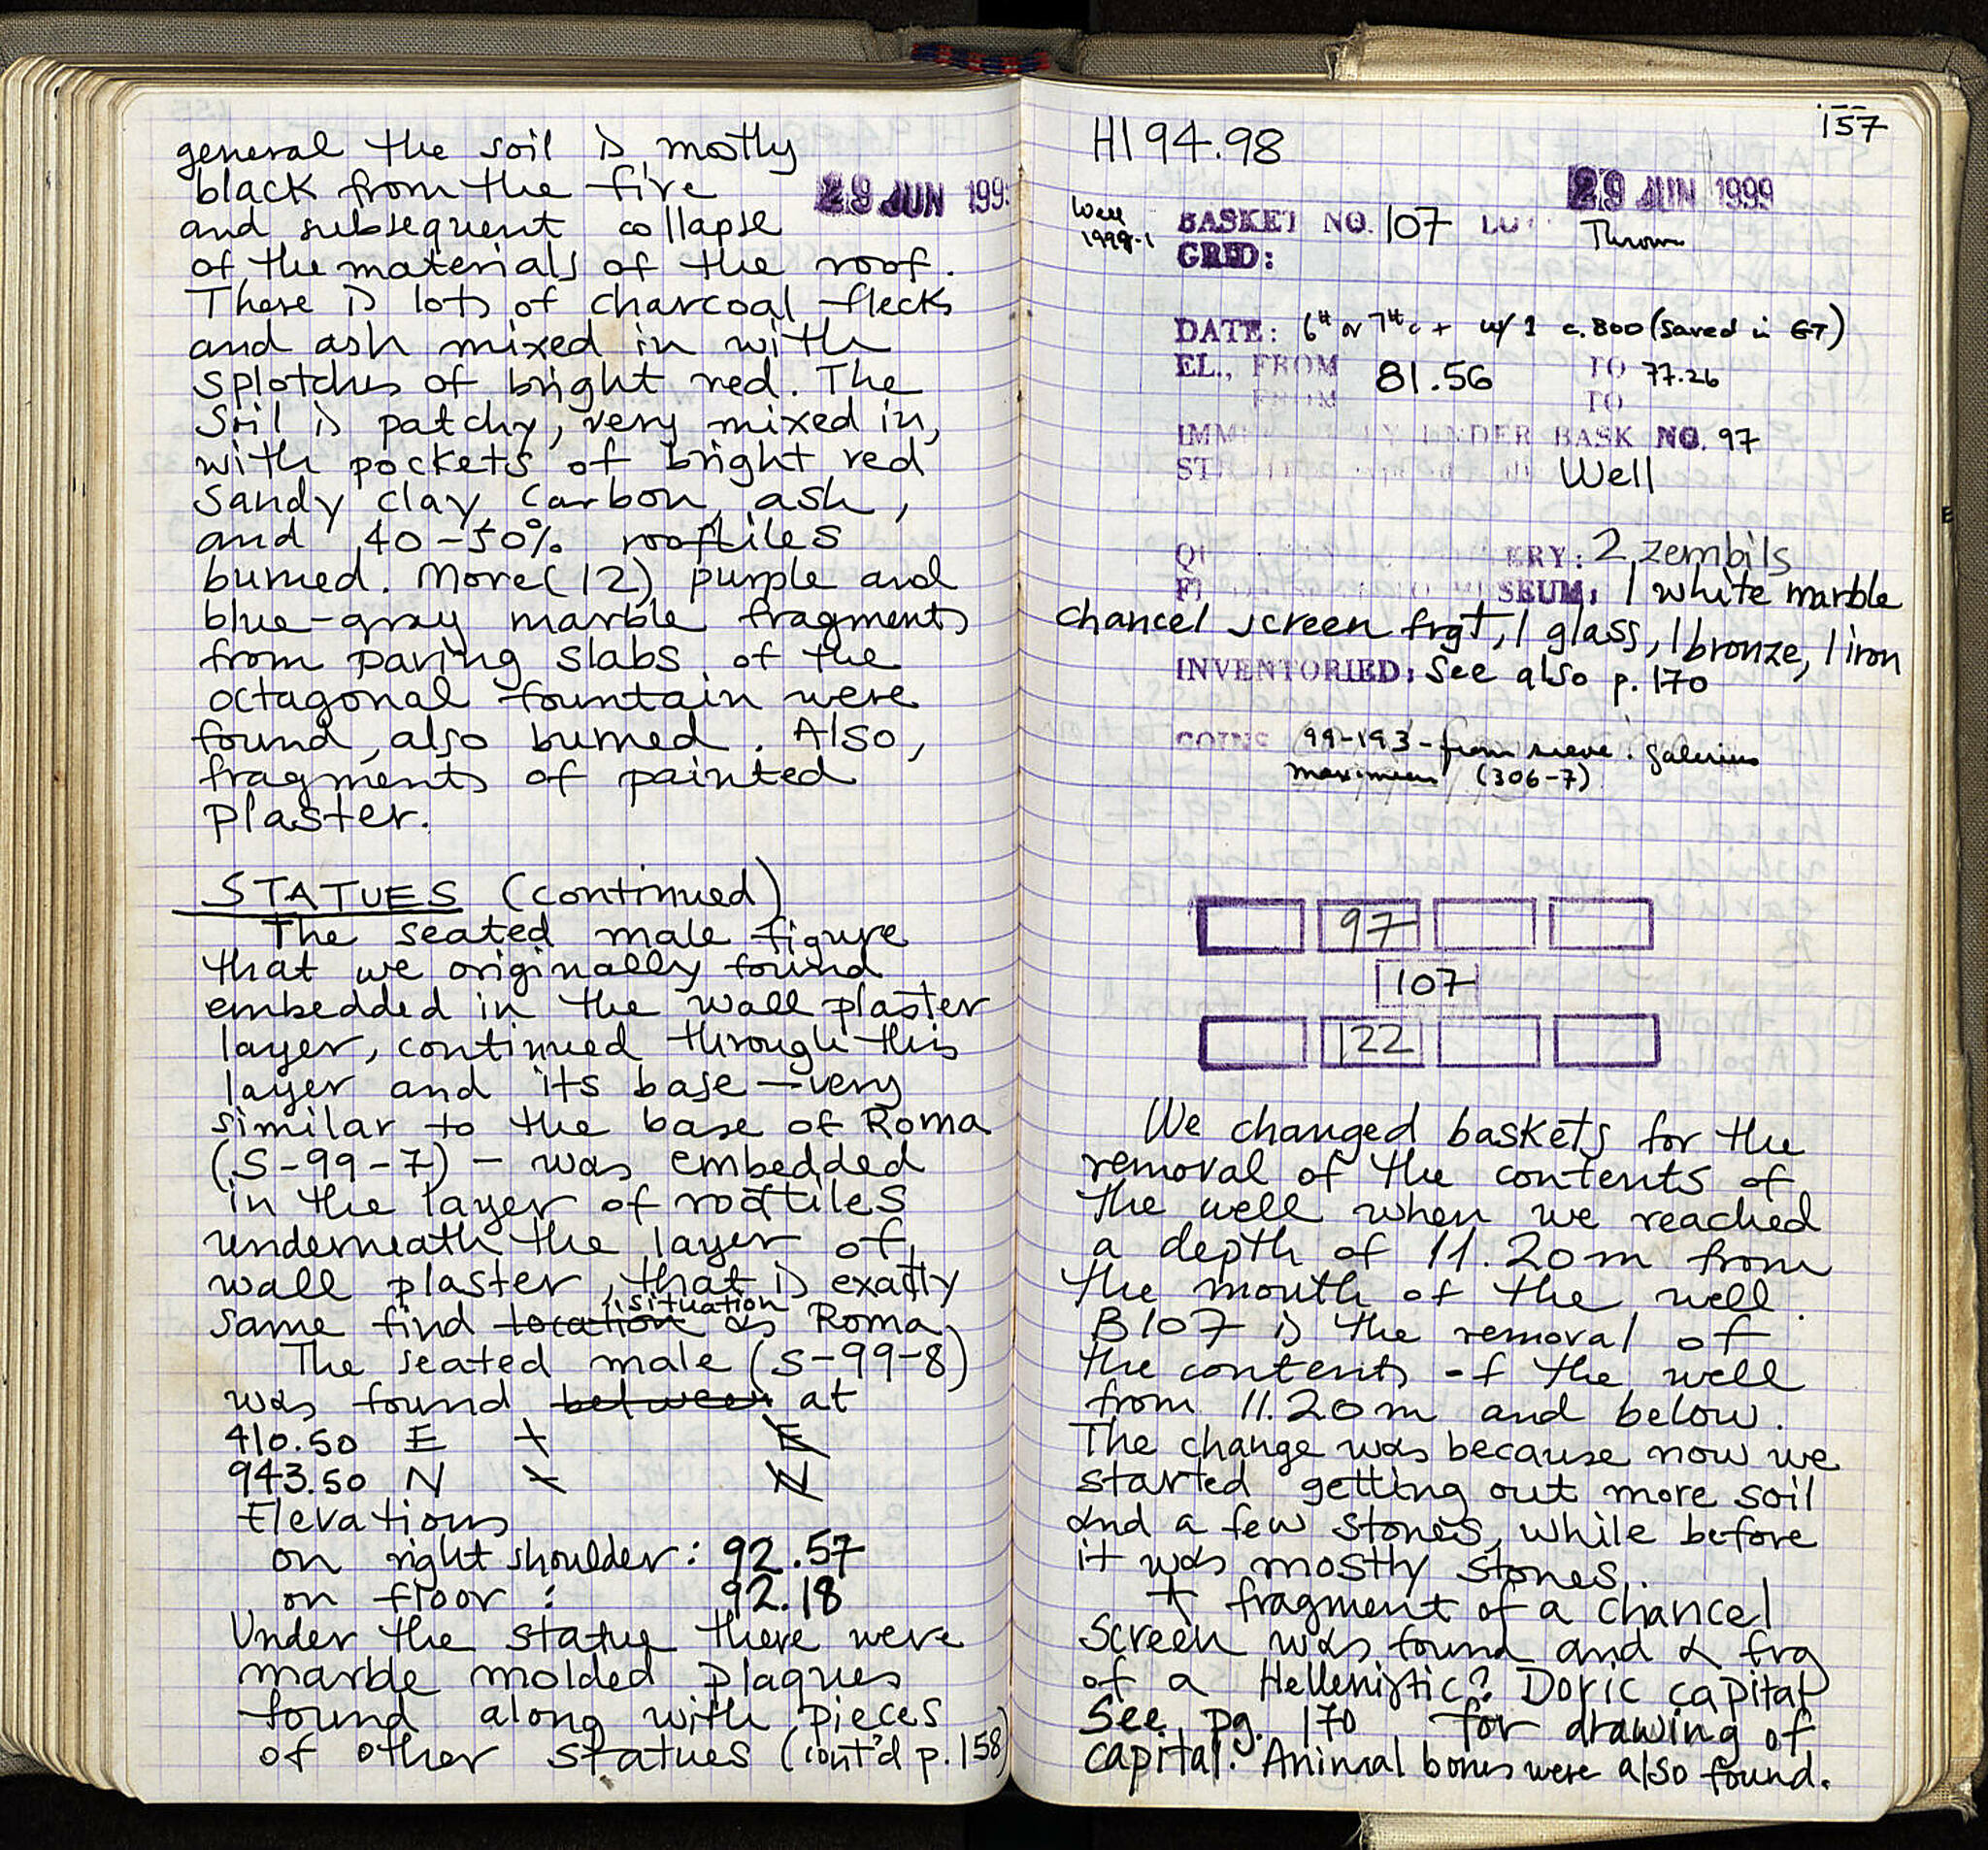 general the soil is mostly
black from the fire
29 JUN 199
and subsequent collapse
of the materials of the roof.
There is lots of charcoal flecks
and ash mixed in with
splotches of bright red. The
soil is patchy, very mixed in,
with pockets of bright red
sandy clay, carbon, ash,
and 40-50% rooftiles
burned. More (12) purple and
blue-gray marble fragments
from paving slabs of the
octagonal fountain were
found, also burned. Also,
fragments of painted
plaster.
STATUES (continued)
The seated male figure
that we originally found
embedded in the wall plaster
layer, continued through this
layer and its base - very
similar to the base of Roma
(S-99-7) - was embedded
in the layer of rooftiles
underneath the layer of
wall plaster, that is exactly
situation
same find location as Roma.
The seated male (S-99-8)
was found between at
410.50 E E
943.50 N N
Elevations
on right shoulder: 92.57
on floor: 92.18
Under the statue there were
marble molded plaques
found along with pieces
of other statues (cont'd p. 158)
157
H194.98
29 JUN 1999
Well
1999-1
BASKET NO. 107 LOT
Thrown
GRID:
DATE: 6th or 7th c + w/ 1 c. 800 (saved in GT)
EL., FROM 81.56 TO 77.26
FROM TO
UNDER BASK NO. 97
Well
ERY: 2 zembils
TO MUSEUM: 1 white marble
chancel screen frgt, 1 glass, 1 bronze, 1 iron
INVENTORIED: See also p. 170
COINS 99-193 - from sieve. Galerius
Maximian (306-7)
97
107
122
We changed baskets for the
removal of the contents of
the well when we reached
a depth of 11.20m from
the mouth of the well.
B107 is the removal of
the contents of the well
from 11.20m and below.
The change was because now we
started getting out more soil
and a few stones, while before
it was mostly stones.
A fragment of a chancel
screen was found and a frg
of a Hellenistic? Doric capital
See pg. 170 for drawing of
capital. Animal bones were also found.